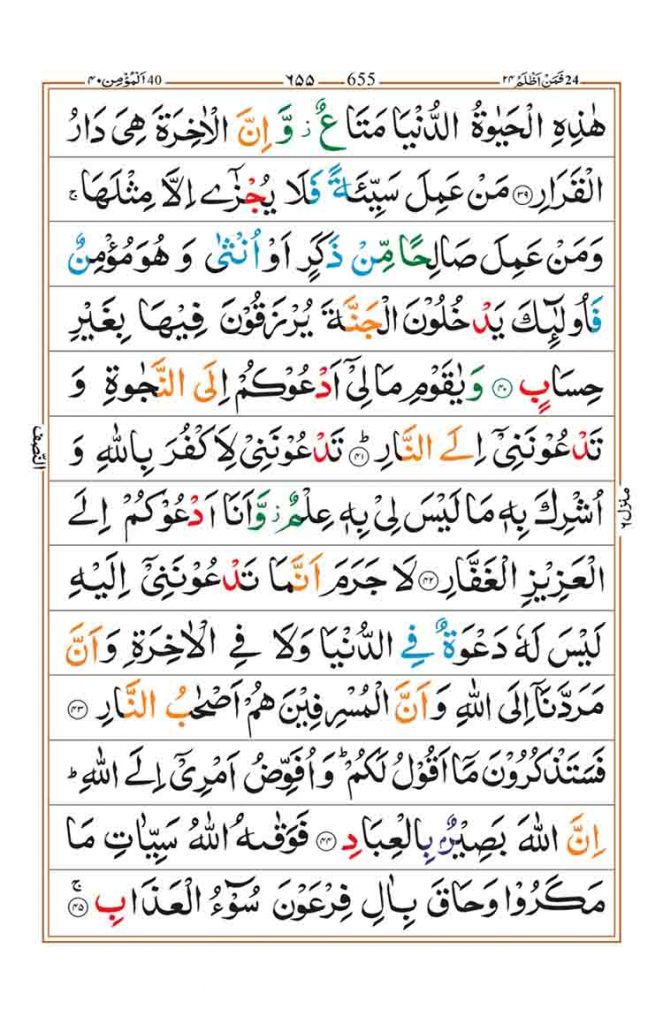 24 فَمَنْ اَظْلَمُ ٢٤ 655 ٦٥٥ 40 اَلْمُؤْمِن ٤٠
هٰذِهِ الْحَيٰوةُ الدُّنْيَا مَتَاعٌ ز وَّ اِنَّ الْاٰخِرَةَ هِىَ دَارُ
الْقَرَارِ ﴿٣٩﴾ مَنْ عَمِلَ سَيِّئَةً فَلَا يُجْزٰٓى اِلَّا مِثْلَهَا ج
وَمَنْ عَمِلَ صَالِحًا مِّنْ ذَكَرٍ اَوْ اُنْثٰى وَ هُوَ مُؤْمِنٌ
فَاُولٰٓئِكَ يَدْخُلُوْنَ الْجَنَّةَ يُرْزَقُوْنَ فِيْهَا بِغَيْرِ
حِسَابٍ ﴿٤٠﴾ وَيٰقَوْمِ مَا لِىْٓ اَدْعُوْكُمْ اِلَى النَّجٰوةِ وَ
تَدْعُوْنَنِىْٓ اِلَى النَّارِ ط ﴿٤١﴾ تَدْعُوْنَنِىْ لِاَكْفُرَ بِاللّٰهِ وَ
اُشْرِكَ بِهٖ مَا لَيْسَ لِىْ بِهٖ عِلْمٌ ز وَّاَنَا اَدْعُوْكُمْ اِلَى
الْعَزِيْزِ الْغَفَّارِ ﴿٤٢﴾ لَا جَرَمَ اَنَّمَا تَدْعُوْنَنِىْٓ اِلَيْهِ
لَيْسَ لَهٗ دَعْوَةٌ فِى الدُّنْيَا وَلَا فِى الْاٰخِرَةِ وَاَنَّ
مَرَدَّنَاۤ اِلَى اللّٰهِ وَاَنَّ الْمُسْرِفِيْنَ هُمْ اَصْحٰبُ النَّارِ ﴿٤٣﴾
فَسَتَذْكُرُوْنَ مَاۤ اَقُوْلُ لَكُمْ ط وَاُفَوِّضُ اَمْرِىْٓ اِلَى اللّٰهِ ط
اِنَّ اللّٰهَ بَصِيْرٌۢ بِالْعِبَادِ ﴿٤٤﴾ فَوَقٰىهُ اللّٰهُ سَيِّاٰتِ مَا
مَكَرُوْا وَحَاقَ بِاٰلِ فِرْعَوْنَ سُوْٓءُ الْعَذَابِ ج ﴿٤٥﴾
النّصف
منزل ٦